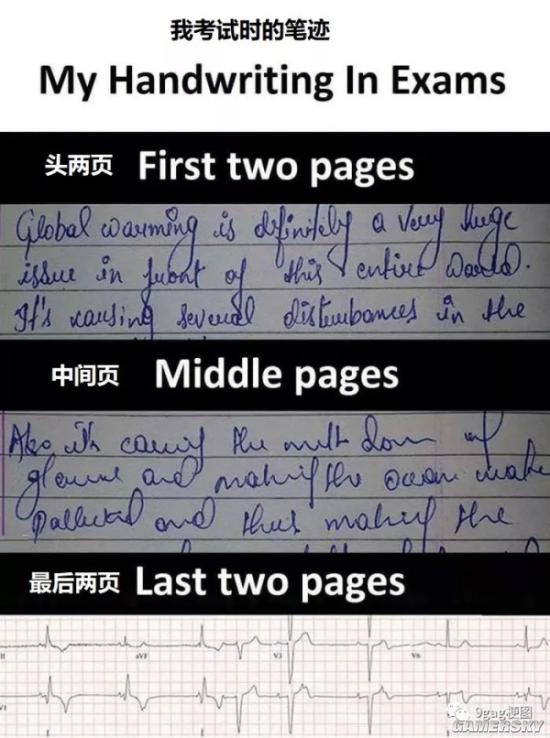 我考试时的笔迹
My Handwriting In Exams
头两页 First two pages
Global warming is definitely a very huge
issue in front of this entire world.
It's causing several disturbances in the
中间页 Middle pages
Also its the melt down of
and making the ocean
and thus making the
最后两页 Last two pages
II aVF V3 V6
V1
9gag梗图
GAMERSKY